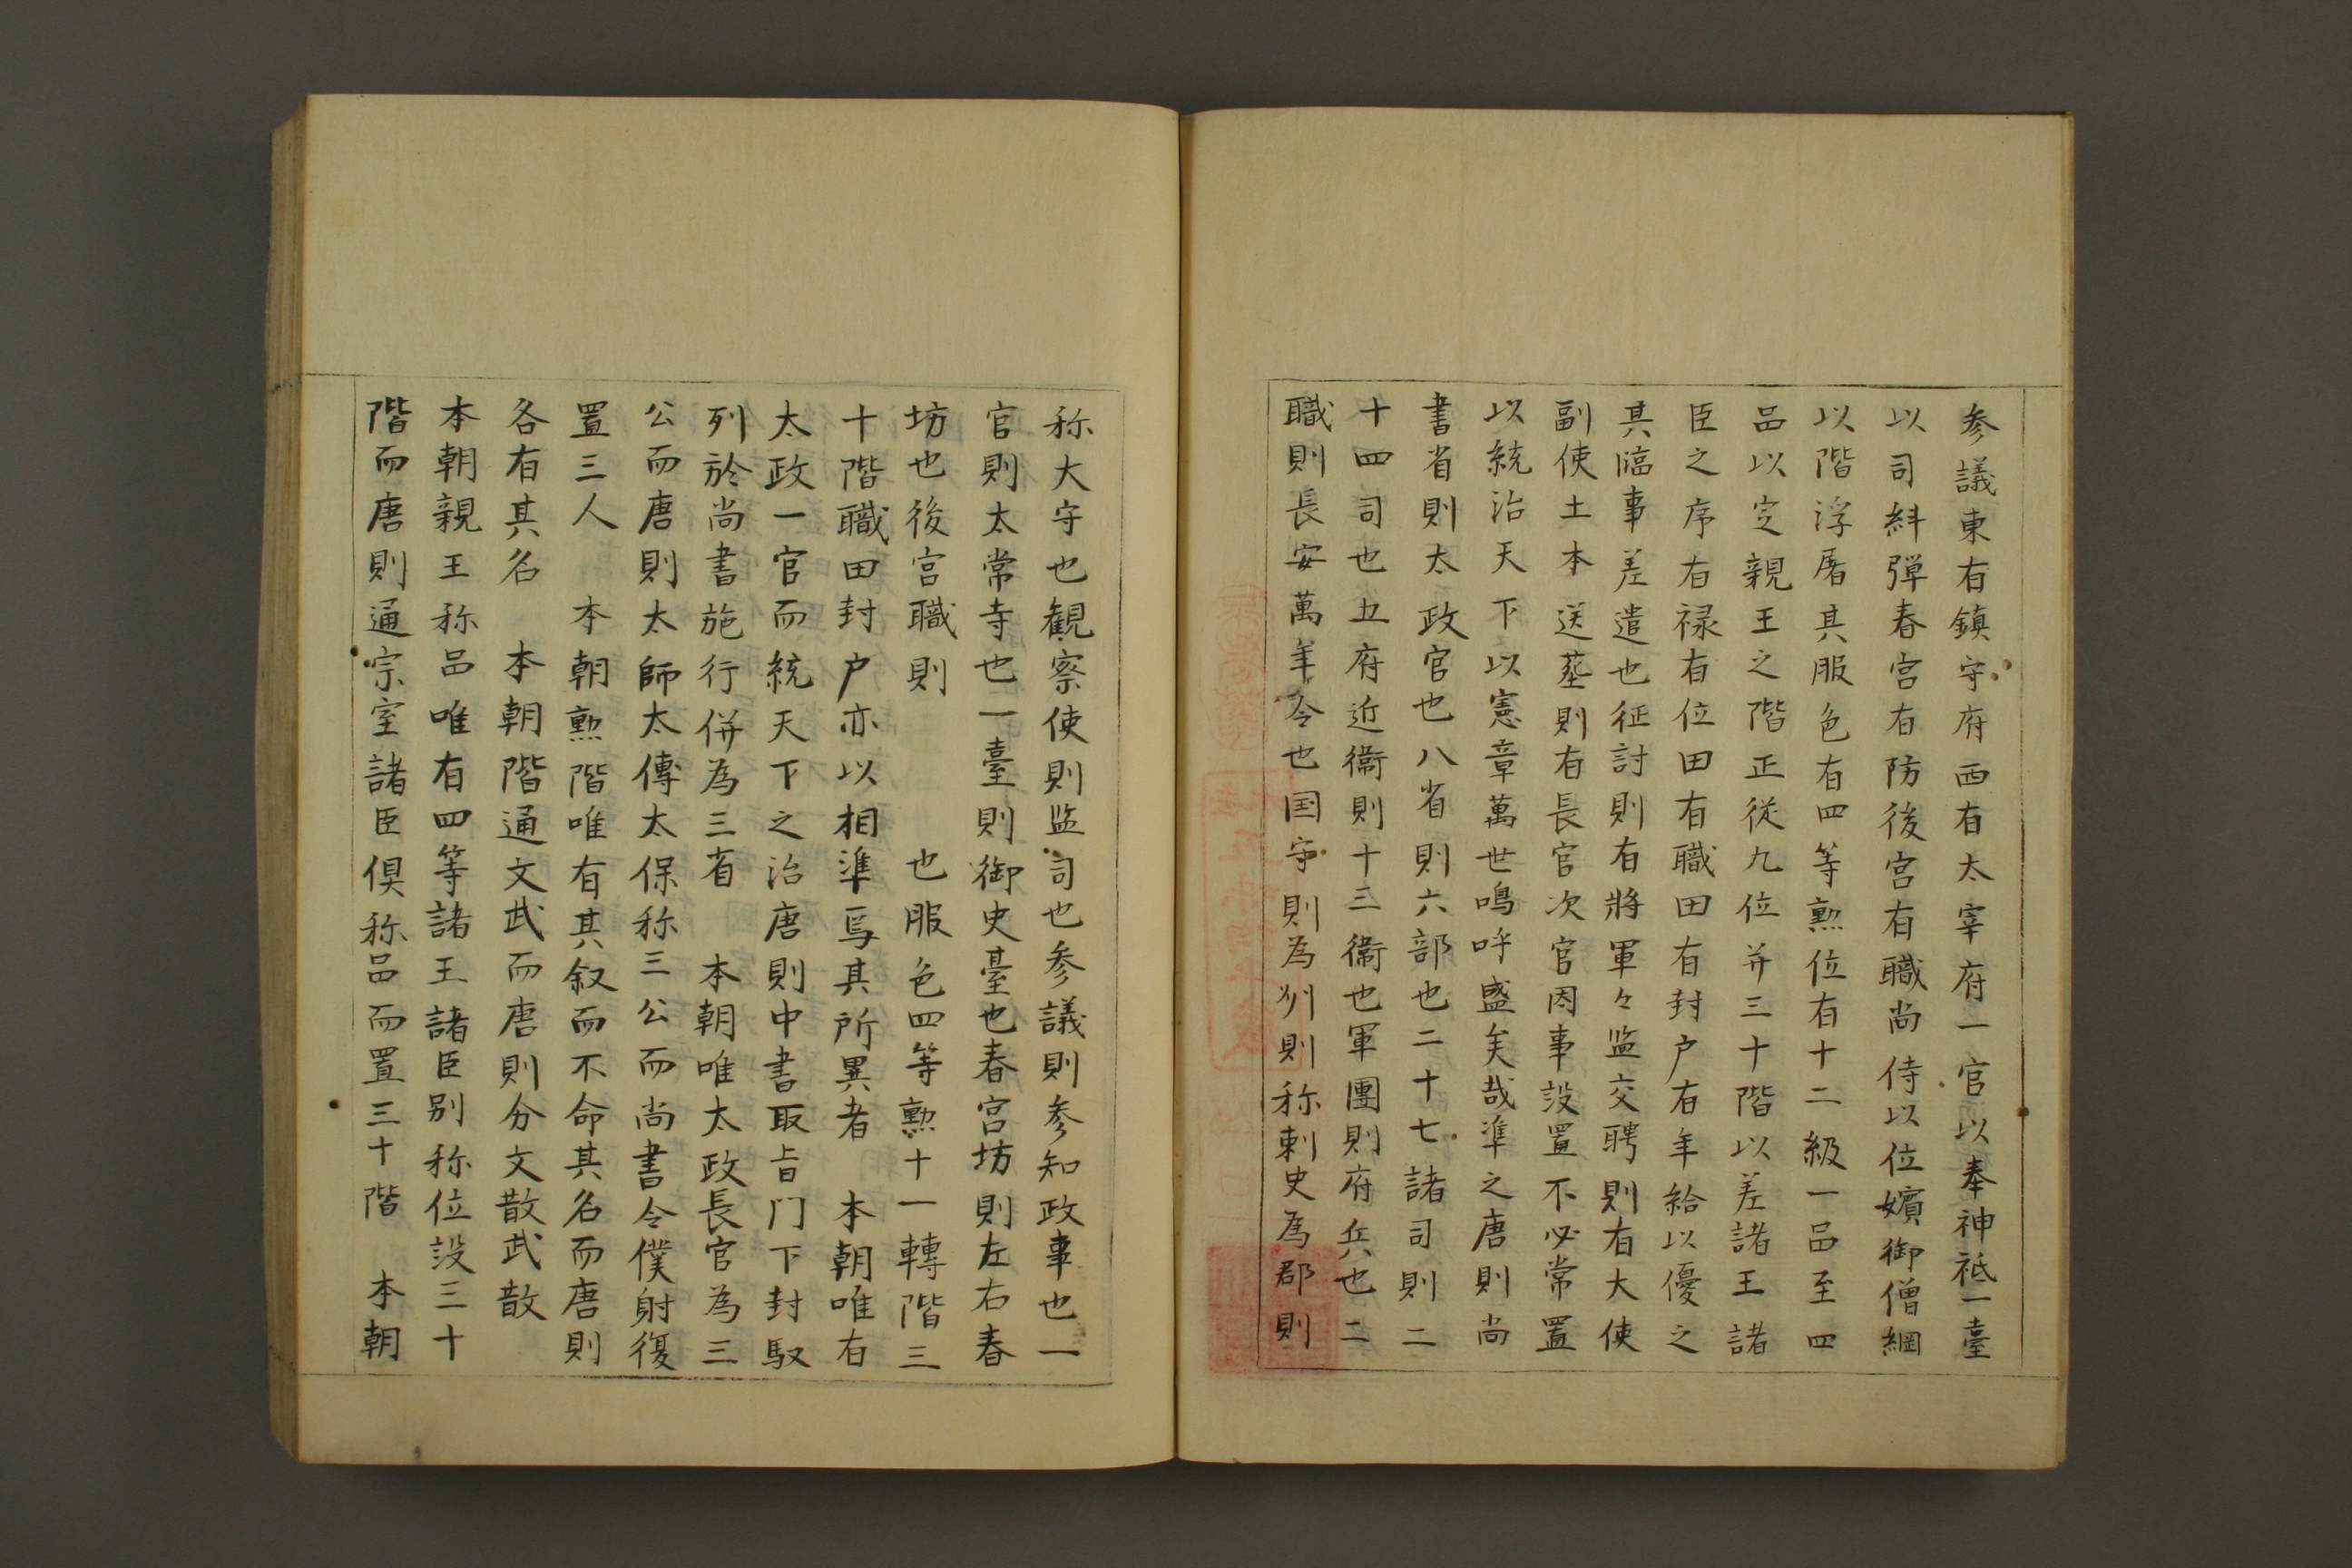 参議東有鎮守府西有太宰府一官以奉神祗一臺
以司糾弾春宮有防後宮有職尚侍以位嬪御僧綱
以階浮屠其服色有四等勲位有十二級一品至四
品以定親王之階正従九位并三十階以差諸王諸
臣之序有禄有位田有職田有封户有年給以優之
其臨事差遣也征討則有将軍々監交聘則有大使
副使土本送葬則有長官次官因事設置不必常置
以統治天下以憲章萬世鳴呼盛矣哉準之唐則尚
書省則太政官也八省則六部也二十七諸司則二
十四司也五府近衞則十三衞也軍團則府兵也二
職則長安萬年令也国守則為州則称刺史為郡則
称大守也観察使則監司也参議則参知政事也一
官則太常寺也一臺則御史臺也春宮坊則左右春
坊也後宮職則　　也服色四等勲十一轉階三
十階職田封户亦以相準焉其所異者　本朝唯有
太政一官而統天下之治唐則中書取旨门下封駁
列於尚書施行併為三省　本朝唯太政長官為三
公而唐則太師太傳太保称三公而尚書令僕射復
置三人　本朝勲階唯有其叙而不命其名而唐則
各有其名　本朝階通文武而唐則分文散武散
本朝親王称品唯有四等諸王諸臣别称位設三十
階而唐則通宗室諸臣俱称品而置三十階　本朝